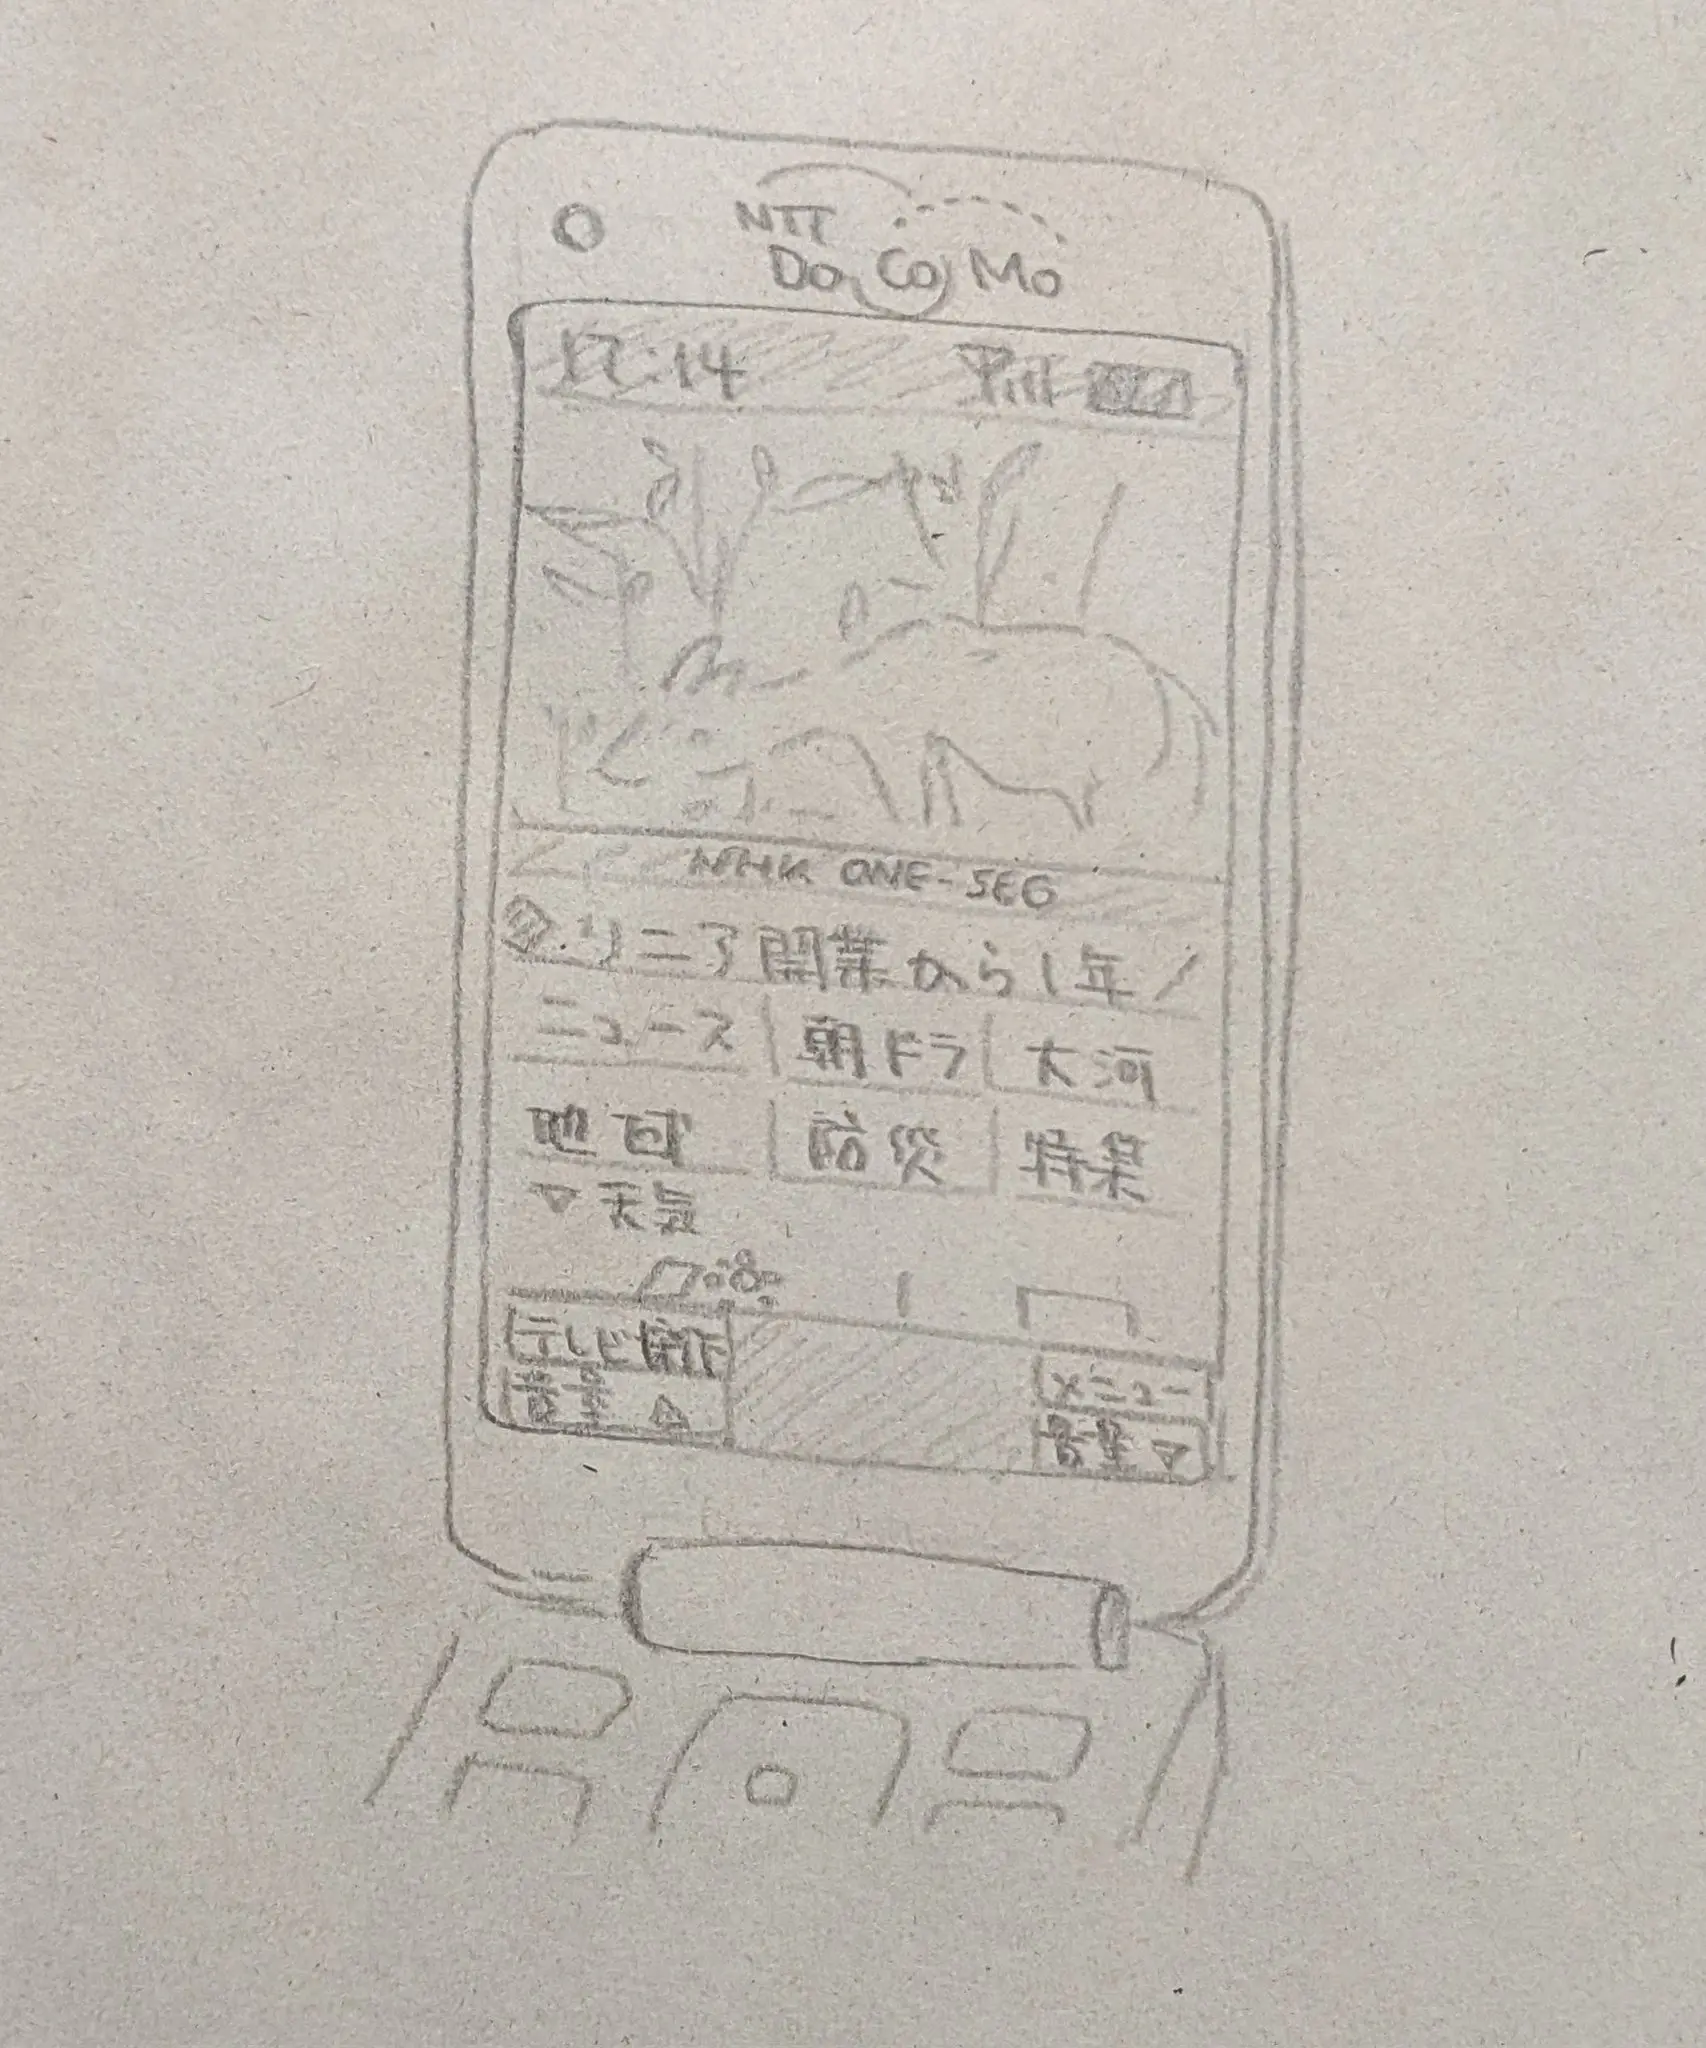 NTT
DoCoMo
17:14
NHK ONE-SEG
リニア開業から1年/
ニュース 朝ドラ 大河
地域 防災 特集
▽天気
テレビ操作 メニュー
音量 △ 音量 ▽